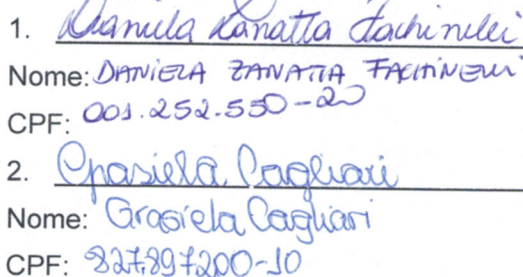 1. Daniela Zanatta Fachinelli
Nome: DANIELA ZANATTA FACHINELLI
CPF: 001.252.550-20
2. Grasiela Cagliari
Nome: Grasiela Cagliari
CPF: 827.897200-10